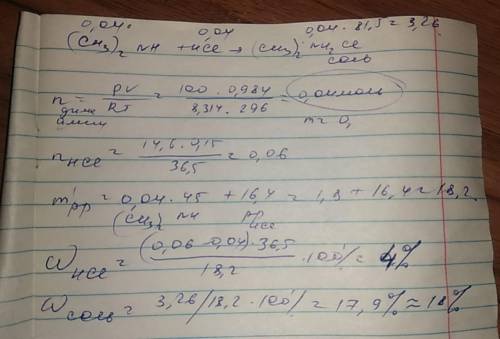 0,04. 0,04 0,04 · 81,5 = 3,26
(CH3)2 NH + HCl → (CH3)2 NH2 Cl
соль
n = PV/RT = 100 · 0,984 / 8,314 · 296 = 0,04 моль
димет
амин m = 0,
nHCl = 14,6 · 0,15 / 36,5 = 0,06
mрр = 0,04 · 45 + 16,4 = 1,8 + 16,4 = 18,2
(CH3)2 NH рр HCl
ωHCl = (0,06 - 0,04) · 36,5 / 18,2 · 100% = 4%
ωсоль = 3,26/18,2 · 100% = 17,9% ≈ 18%